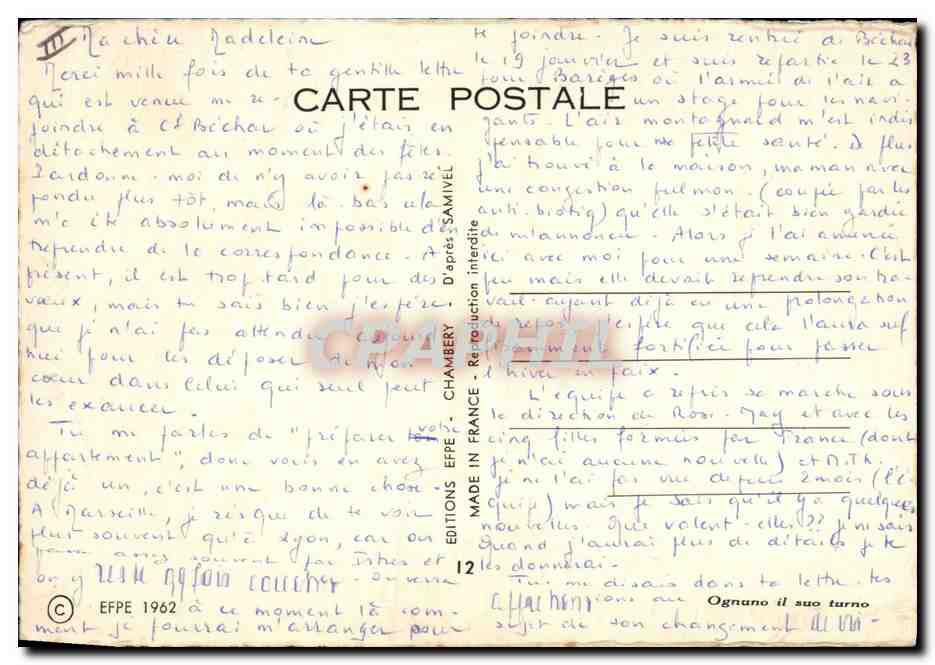 III
Ma chère Madeleine
Merci mille fois de ta gentille lettre
qui est venue me re-
joindre à Cb Béchar où j'étais en
détachement au moment des fêtes.
Pardonne-moi de n'y avoir pas ré
pondu plus tôt, mais là-bas cela
m'a été absolument impossible d'en
treprendre de la correspondance. A
présent, il est trop tard pour des
vœux, mais tu sais bien j'espère
que je n'ai pas attendu aujour
d'hui pour les déposer de mon
cœur dans Celui qui seul peut
les exaucer.
Tu me parles de "préparer votre
appartement", donc vous en avez
déjà un, c'est une bonne chose.
A Marseille, je risque de te voir
plus souvent qu'à Lyon, car on
passe assez souvent par Istres et
on y reste parfois coucher. On verra
à ce moment là com-
ment je pourrai m'arranger pour
te joindre. Je suis rentrée de Béchar
le 19 janvier et suis repartie le 23
pour Barèges où l'armée de l'air a
un stage pour les navi-
gants. L'air montagnard m'est indis
pensable pour ma petite santé. De plus
j'ai trouvé à la maison, maman avec
une congestion pulmon. (coupée par les
anti-biotiq) qu'elle s'était bien gardée
de m'annoncer. Alors je l'ai amenée
ici avec moi pour une semaine. C'est
peu mais elle devait reprendre son tra-
vail ayant déjà eu une prolongation
de repos. J'espère que cela l'aura suf
fisamment fortifiée pour passer
l'hiver en paix.
L'équipe a repris sa marche sous
la direction de Rose-May et avec les
cinq filles formées par France (dont
je n'ai aucune nouvelle) et M.Th.
je ne l'ai pas vue depuis 2 mois (l'é-
quipe) mais je sais qu'il y a quelques
nouvelles. Que valent-elles ?? je ne sais
Quand j'aurai plus de détails je te
les donnerai.
Tu me disais dans ta lettre tes
au
sujet de son changement
CARTE POSTALE
EDITIONS EFPE - CHAMBERY - D'après SAMIVEL
MADE IN FRANCE - Reproduction interdite
CPAPHIL
12
© EFPE 1962
Ognuno il suo turno